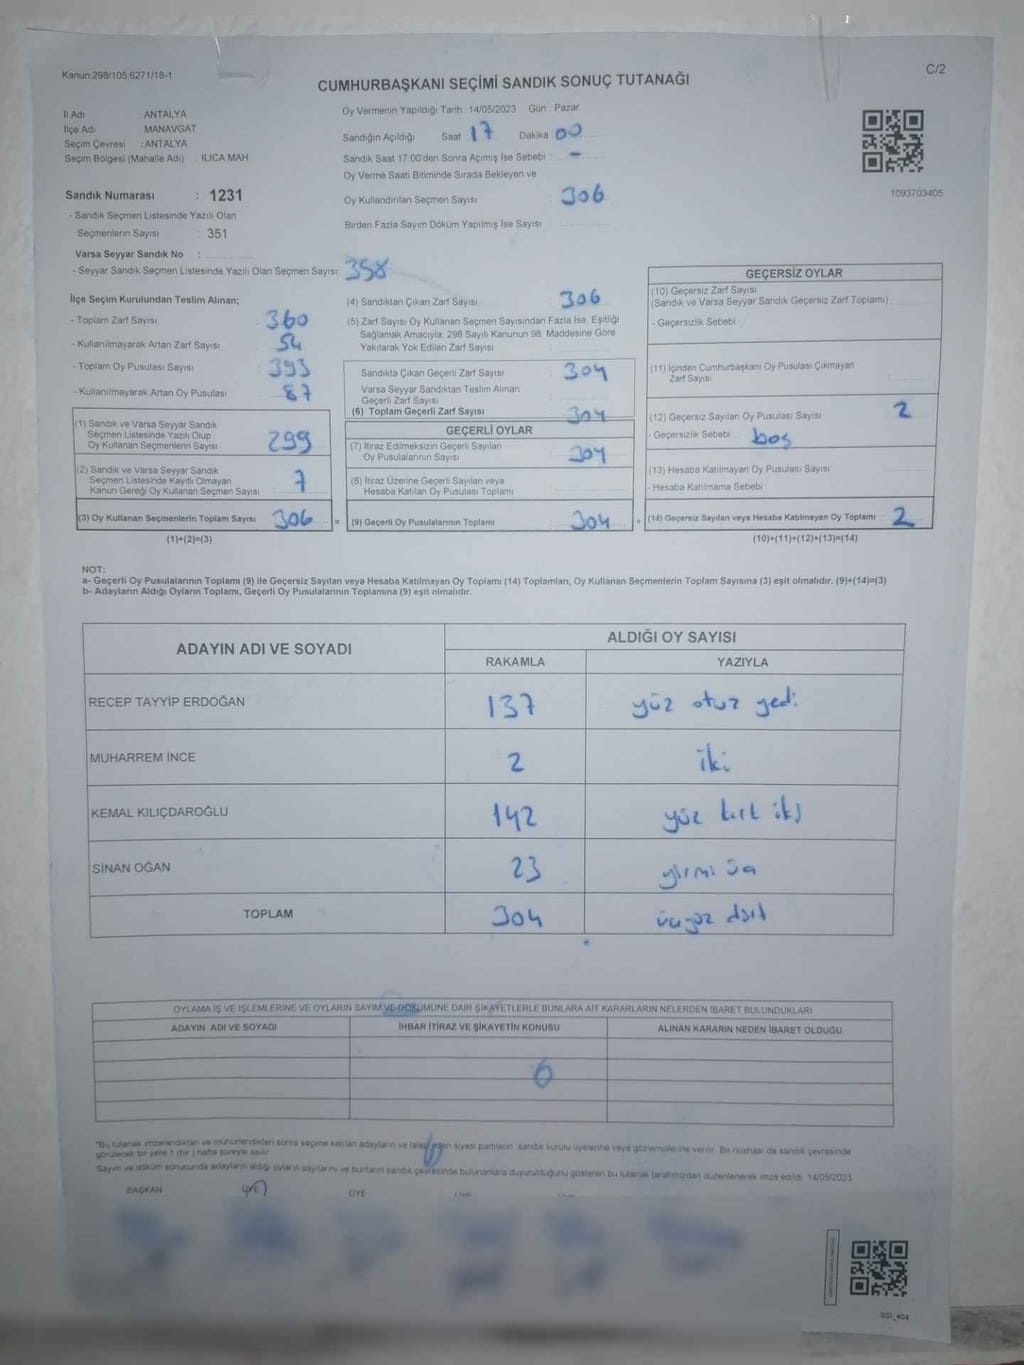 Kanun:298/105 6271/18-1
C/2
CUMHURBAŞKANI SEÇİMİ SANDIK SONUÇ TUTANAĞI
İl Adı ANTALYA
İlçe Adı MANAVGAT
Seçim Çevresi : ANTALYA
Seçim Bölgesi (Mahalle Adı) ILICA MAH
Oy Vermenin Yapıldığı Tarih :14/05/2023 Gün : Pazar
Sandığın Açıldığı Saat 17 Dakika 00
Sandık Saat 17:00'den Sonra Açımış İse Sebebi : -
Oy Verme Saati Bitiminde Sırada Bekleyen ve
Oy Kullandırılan Seçmen Sayısı 306
Birden Fazla Sayım Döküm Yapılmış İse Sayısı
1093703405
Sandık Numarası : 1231
- Sandık Seçmen Listesinde Yazılı Olan
Seçmenlerin Sayısı : 351
Varsa Seyyar Sandık No :
- Seyyar Sandık Seçmen Listesinde Yazılı Olan Seçmen Sayısı: 358
İlçe Seçim Kurulundan Teslim Alınan;
- Toplam Zarf Sayısı 360
- Kullanılmayarak Artan Zarf Sayısı 54
- Toplam Oy Pusulası Sayısı 393
- Kullanılmayarak Artan Oy Pusulası 87
(1) Sandık ve Varsa Seyyar Sandık
Seçmen Listesinde Yazılı Olup
Oy Kullanan Seçmenlerin Sayısı 299
(2) Sandık ve Varsa Seyyar Sandık
Seçmen Listesinde Kayıtlı Olmayan
Kanun Gereği Oy Kullanan Seçmen Sayısı 7
(3) Oy Kullanan Seçmenlerin Toplam Sayısı 306
(1)+(2)=(3)
(4) Sandıktan Çıkan Zarf Sayısı 306
(5) Zarf Sayısı Oy Kullanan Seçmen Sayısından Fazla İse, Eşitliği
Sağlamak Amacıyla; 298 Sayılı Kanunun 98. Maddesine Göre
Yakılarak Yok Edilen Zarf Sayısı
Sandıkta Çıkan Geçerli Zarf Sayısı 304
Varsa Seyyar Sandıktan Teslim Alınan
Geçerli Zarf Sayısı
(6) Toplam Geçerli Zarf Sayısı 304
GEÇERLİ OYLAR
(7) İtiraz Edilmeksizin Geçerli Sayılan
Oy Pusulalarının Sayısı 304
(8) İtiraz Üzerine Geçerli Sayılan veya
Hesaba Katılan Oy Pusulası Toplamı
= (9) Geçerli Oy Pusulalarının Toplamı 304
GEÇERSİZ OYLAR
(10) Geçersiz Zarf Sayısı
(Sandık ve Varsa Seyyar Sandık Geçersiz Zarf Toplamı)
- Geçersizlik Sebebi
(11) İçinden Cumhurbaşkanı Oy Pusulası Çıkmayan
Zarf Sayısı
(12) Geçersiz Sayılan Oy Pusulası Sayısı 2
- Geçersizlik Sebebi boş
(13) Hesaba Katılmayan Oy Pusulası Sayısı
- Hesaba Katılmama Sebebi
+ (14) Geçersiz Sayılan veya Hesaba Katılmayan Oy Toplamı 2
(10)+(11)+(12)+(13)=(14)
NOT:
a- Geçerli Oy Pusulalarının Toplamı (9) ile Geçersiz Sayılan veya Hesaba Katılmayan Oy Toplamı (14) Toplamları, Oy Kullanan Seçmenlerin Toplam Sayısına (3) eşit olmalıdır. (9)+(14)=(3)
b- Adayların Aldığı Oyların Toplamı, Geçerli Oy Pusulalarının Toplamına (9) eşit olmalıdır.
ADAYIN ADI VE SOYADI
ALDIĞI OY SAYISI
RAKAMLA YAZIYLA
RECEP TAYYİP ERDOĞAN 137 yüz otuz yedi
MUHARREM İNCE 2 iki
KEMAL KILIÇDAROĞLU 142 yüz kırk iki
SİNAN OĞAN 23 yirmi üç
TOPLAM 304 üçyüz dört
OYLAMA İŞ VE İŞLEMLERİNE VE OYLARIN SAYIM VE DÖKÜMÜNE DAİR ŞİKAYETLERLE BUNLARA AİT KARARLARIN NELERDEN İBARET BULUNDUKLARI
ADAYIN ADI VE SOYADI İHBAR İTİRAZ VE ŞİKAYETİN KONUSU ALINAN KARARIN NEDEN İBARET OLDUĞU
0
"Bu tutanak imzalandıktan ve mühürlendikten sonra seçime katılan adayların ve talep eden siyasi partilerin sandık kurulu üyelerine veya gözlemcilerine verilir. Bir nüshası da sandık çevresinde
görülecek bir yere 1 (bir) hafta süreyle asılır.
Sayım ve döküm sonucunda adayların aldığı oyların sayılarını ve bunların sandık çevresinde bulunanlara duyurulduğunu gösteren bu tutanak tarafımızdan düzenlenerek imza edildi. 14/05/2023
BAŞKAN ÜYE ÜYE
SSİ_404